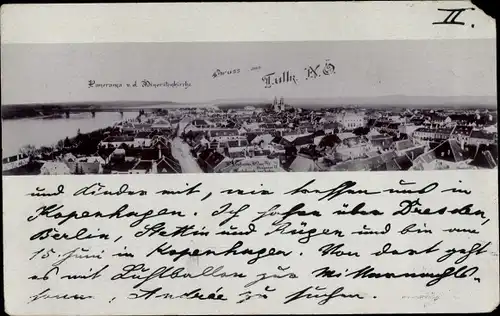 II
Panorama v. d. Minoritenkirche
Gruss aus Tulln N.Ö
und Kinder mit, wir treffen uns in
Kopenhagen. Ich fahre über Dresden,
Berlin, Stettin und Rügen und bin am
15. Juni in Kopenhagen. Von dort geht
es mit Luftballon zur Mitternachts-
sonne, Andrée zu suchen.